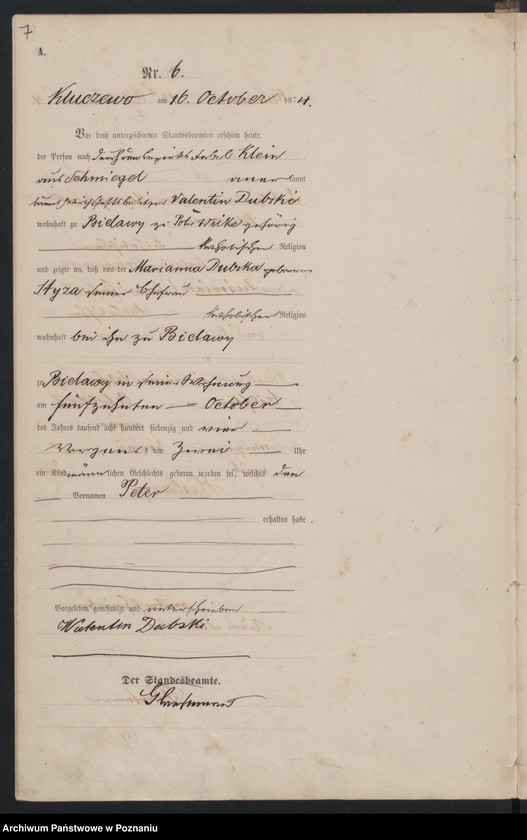 7
A.
Nr. 6.
Kluczewo am 16. October 1874.
Vor dem unterzeichneten Standesbeamten erschien heute,
der Person nach durch den Klein
aus Schmiegel anerkannt
Valentin Dubski
wohnhaft zu Bielawy zu gehörig
katholischer Religion
und zeigte an, daß von der Marianna Dubska geborenen
Hyza seiner Ehefrau
katholischer Religion
wohnhaft bei ihm zu Bielawy
zu Bielawy in seiner Wohnung
am fünfzehnten October
des Jahres tausend acht hundert siebenzig und vier
um Zwei Uhr
ein Kind männlichen Geschlechts geboren worden sei, welches den
Vornamen Peter
erhalten habe.
Vorgelesen, genehmigt und unterschrieben
Walentin Dubski
Der Standesbeamte.
Archiwum Państwowe w Poznaniu